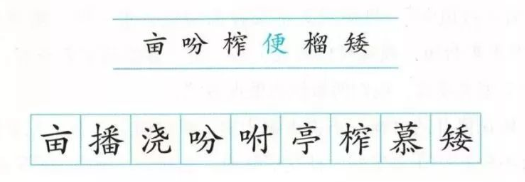 亩吩榨便榴矮
亩播浇吩咐亭榨慕矮